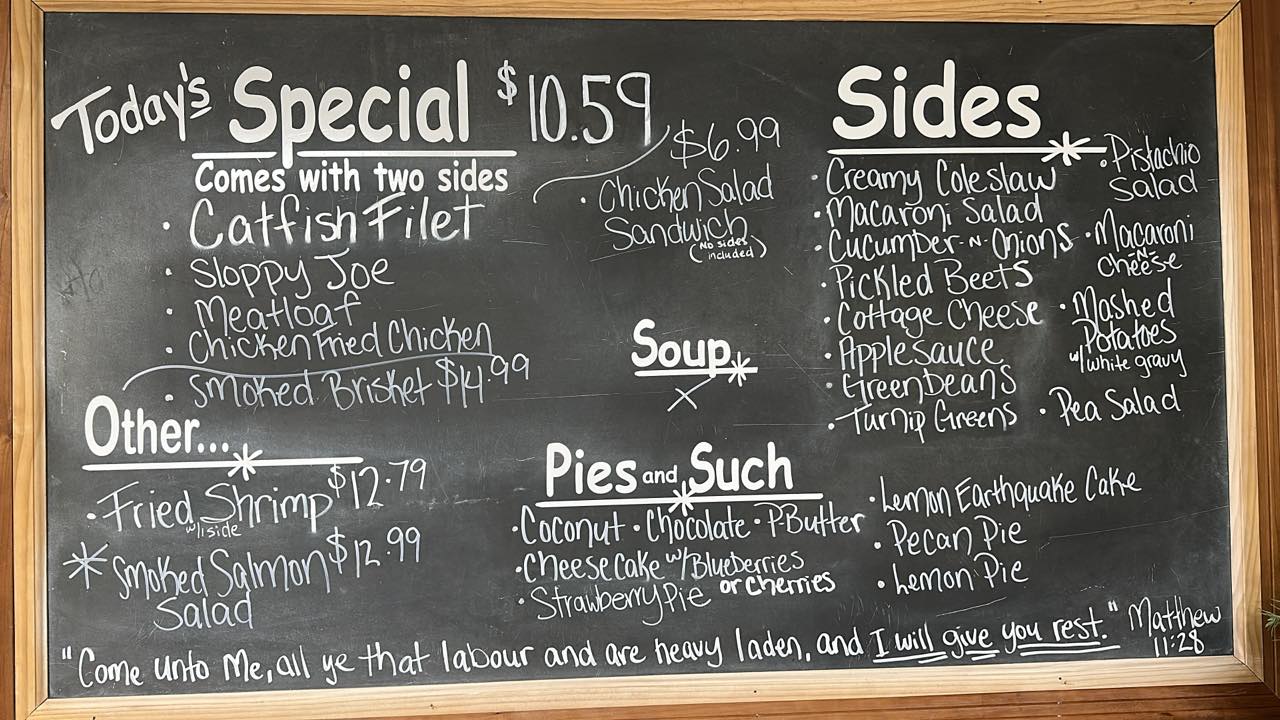 Today's Special $10.59
Comes with two sides
• Catfish Filet
• Sloppy Joe
• Meatloaf
• Chicken Fried Chicken
• Smoked Brisket $14.99
$6.99
• Chicken Salad
Sandwich
(No sides
included)
Other...
• Fried Shrimp $12.79
w/1 side
* Smoked Salmon $12.99
Salad
Soup
X
Pies and Such
• Coconut • Chocolate • P-Butter
• Cheesecake w/Blueberries
or Cherries
• Strawberry Pie
• Lemon Earthquake Cake
• Pecan Pie
• Lemon Pie
Sides
• Creamy Coleslaw
• Macaroni Salad
• Cucumber -N- Onions
• Pickled Beets
• Cottage Cheese
• Applesauce
• Green Beans
• Turnip Greens
• Pistachio
Salad
• Macaroni
-N-
Cheese
• Mashed
Potatoes
w/ white gravy
• Pea Salad
"Come unto Me, all ye that labour and are heavy laden, and I will give you rest." Matthew
11:28